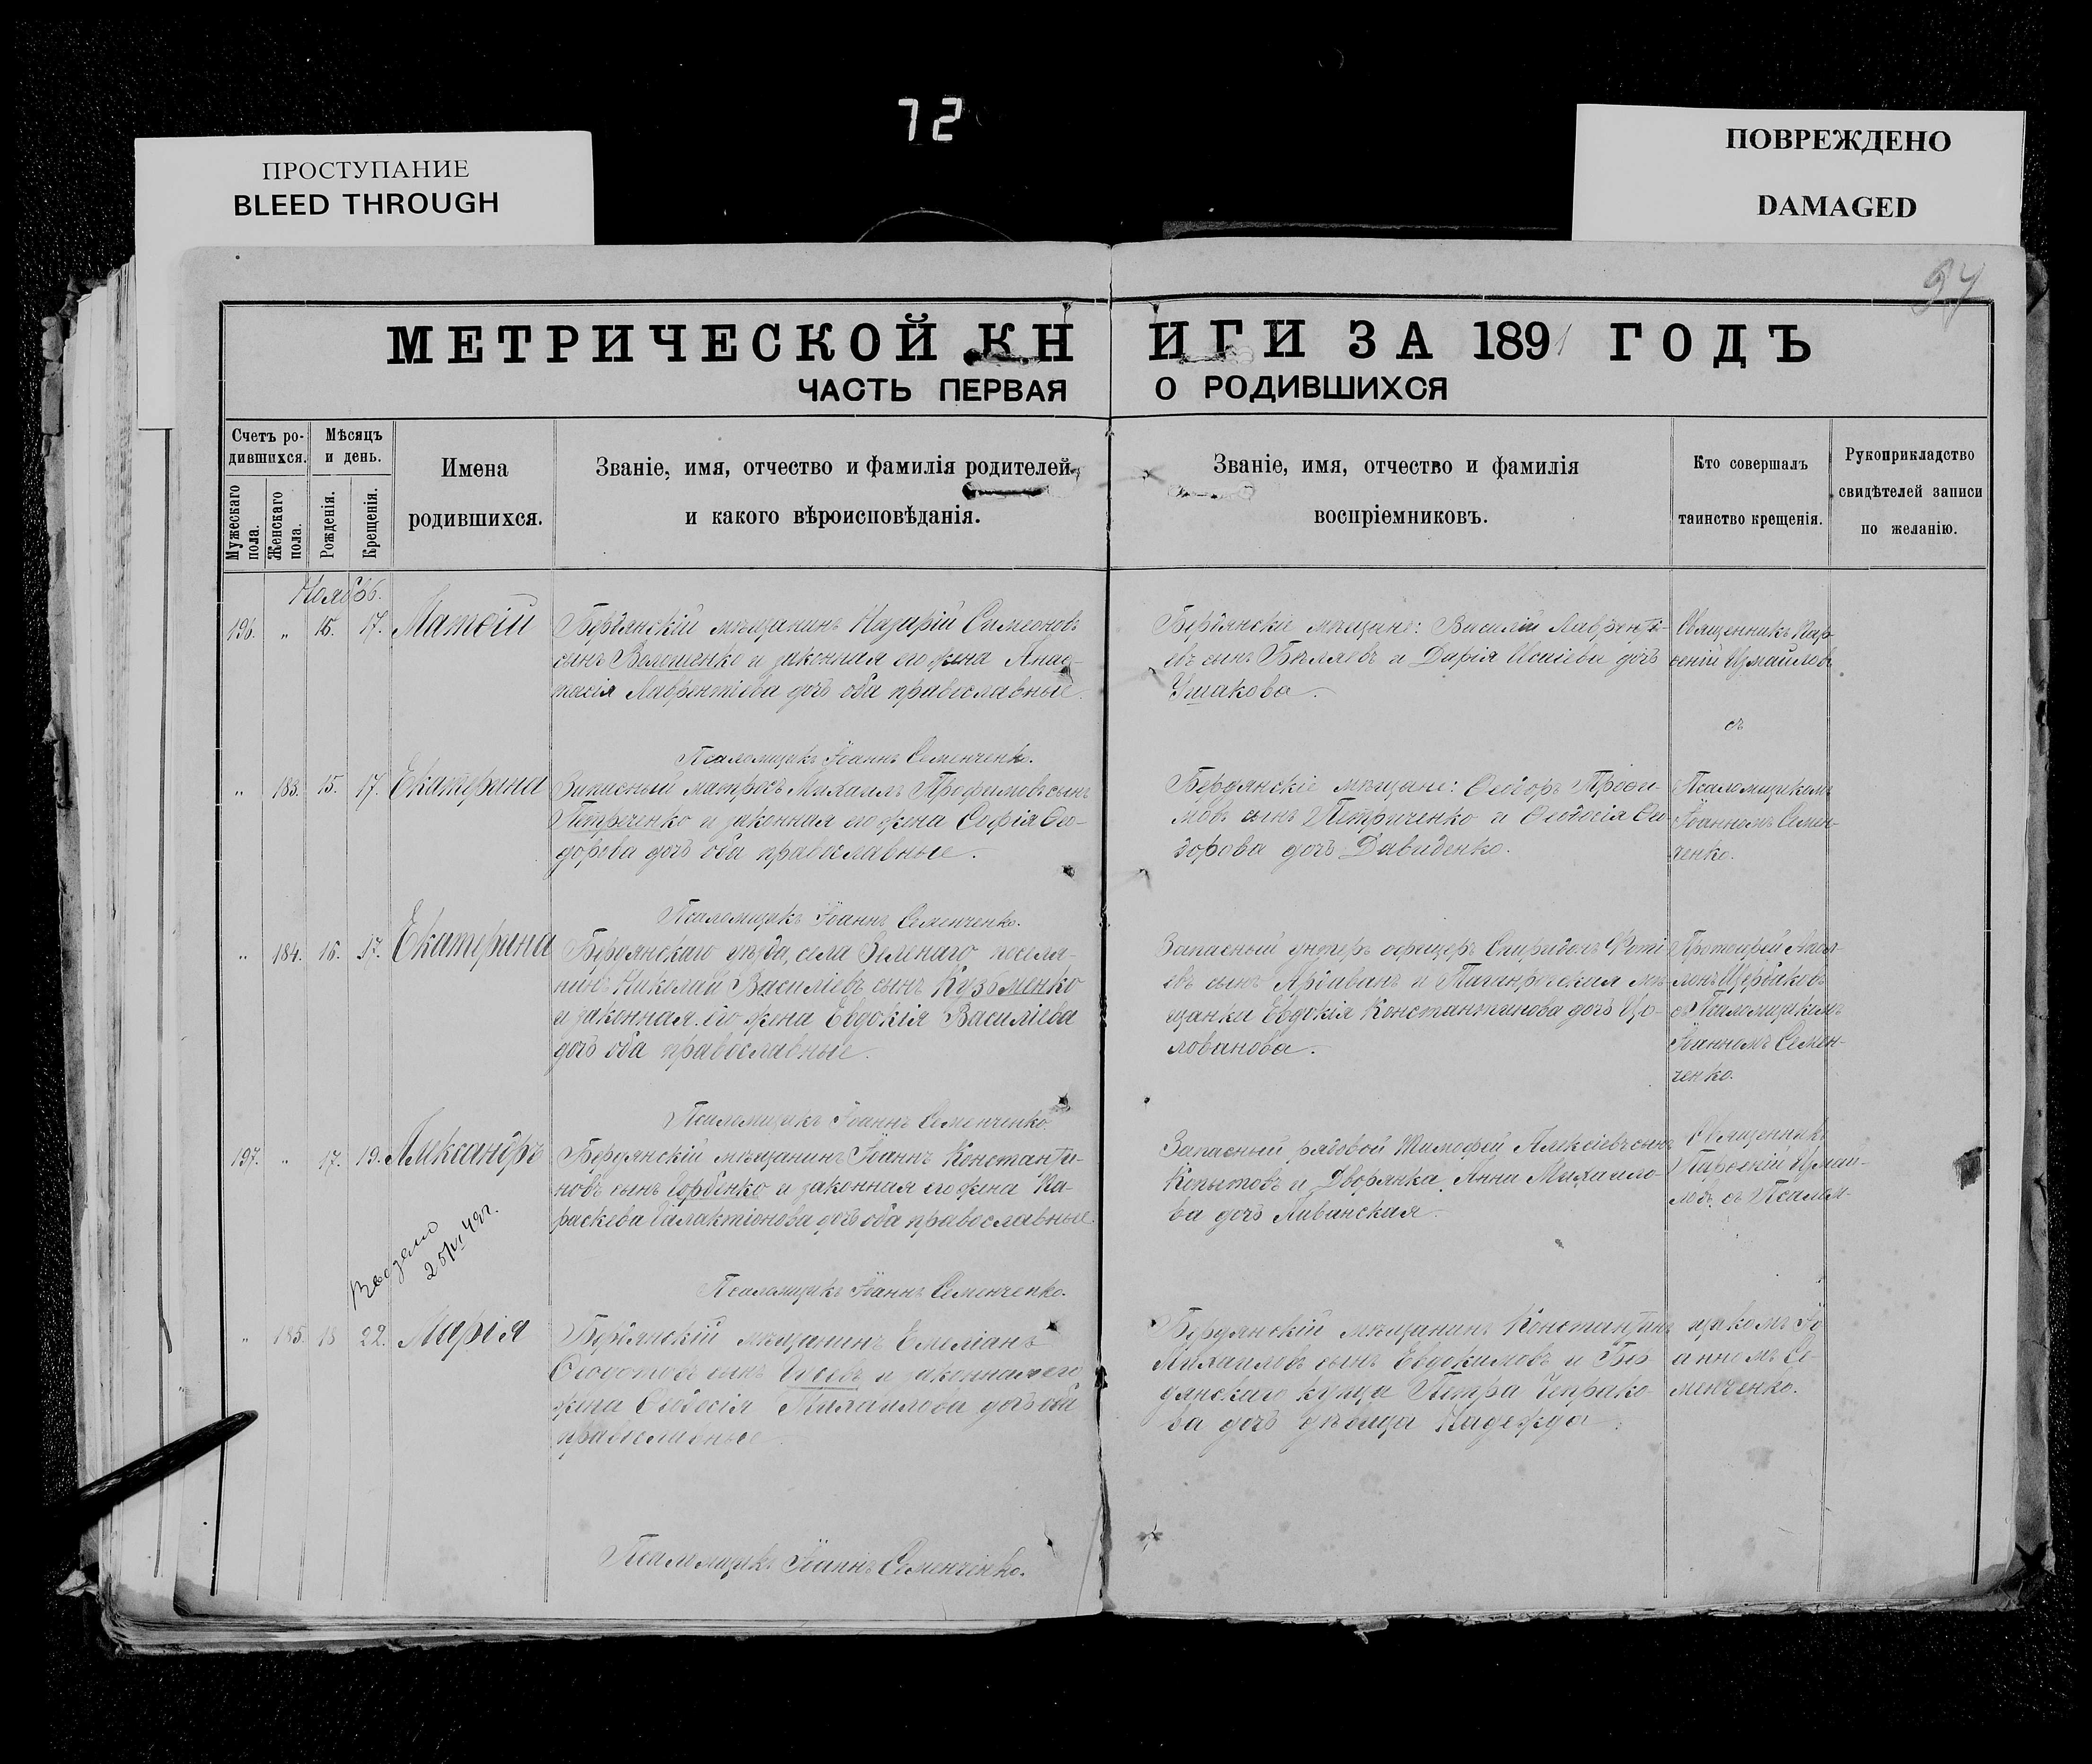 72
ПРОСТУПАНИЕ
BLEED THROUGH
ПОВРЕЖДЕНО
DAMAGED
МЕТРИЧЕСКОЙ КНИГИ ЗА 1891 ГОДЪ
ЧАСТЬ ПЕРВАЯ О РОДИВШИХСЯ
Счетъ ро-
дившихся.
Мужескаго пола.
Женскаго пола.
Мѣсяцъ
и день.
Рожденія.
Крещенія.
Имена
родившихся.
Званіе, имя, отчество и фамилія родителей,
и какого вѣроисповѣданія.
Званіе, имя, отчество и фамилія
воспріемниковъ.
Кто совершалъ
таинство крещенія.
Рукоприкладство
свидѣтелей записи
по желанію.
Ноябрь.
196. „ 15. 17. Матѳій
Бердянскій мѣщанинъ Назарій Симеоновъ
сынъ Волошенко и законная его жена Анас-
тасія Лаврентіева дочь оба православные.
Бердянскіе мѣщане: Василій Лаврентi-
евъ сынъ Бѣляевъ и Дарія Исаіева дочь
Ушакова.
Священникъ Пар-
ѳеній Измаиловъ
съ
Псаломщикъ Іоаннъ Семенченко.
„ 183. 15. 17. Екатерина
Запасный матросъ Михаилъ Трофимовъ сынъ
Петреченко и законная его жена Софія Ѳео-
дорова дочь оба православные.
Бердянскіе мѣщане: Ѳеодоръ Трофи-
мовъ сынъ Петриченко и Ѳеодосія Си-
дорова дочь Давиденко.
Псаломщикомъ
Іоанномъ Семен-
ченко.
Псаломщикъ Іоаннъ Семенченко.
„ 184. 16. 17. Екатерина
Бердянскаго уѣзда, села Зеленаго поселя-
нинъ Николай Василіевъ сынъ Кузьменко
и законная его жена Евдокія Василіева
дочь оба православные.
Запасный унтеръ офицеръ Спиридонъ Фоті-
евъ сынъ и Таганрогская мѣ-
щанка Евдокія Константинова дочь Цо-
лованова.
Протоіерей
Щербаковъ
съ Псаломщикомъ
Іоанномъ Семен-
ченко.
Псаломщикъ Іоаннъ Семенченко.
197. „ 17. 19. Александръ
Бердянскій мѣщанинъ Іоаннъ Константи-
новъ сынъ Гордѣнко и законная его жена Па-
раскева Галактіонова дочь оба православные.
Запасный рядовой Тимофей Алексіевъ сынъ
Копытовъ и Дворянка Анна Михаило-
ва дочь Ливанская.
Священникъ
Парѳеній Измаи-
ловъ съ Псалом-
25/VI 49 г.
Псаломщикъ Іоаннъ Семенченко.
„ 185. 18 22. Марія
Бердянскій мѣщанинъ Емеліанъ
Ѳеодотовъ сынъ и законная его
жена Ѳеодосія Михаилова дочь оба
православные
Бердянскій мѣщанинъ Константинъ
Михаиловъ сынъ Евдокимовъ и Бер-
дянскаго купца Петра Чепрако-
ва дочь дѣвица Надежда.
щикомъ Іо-
анномъ Се-
менченко.
Псаломщикъ Іоаннъ Семенченко.